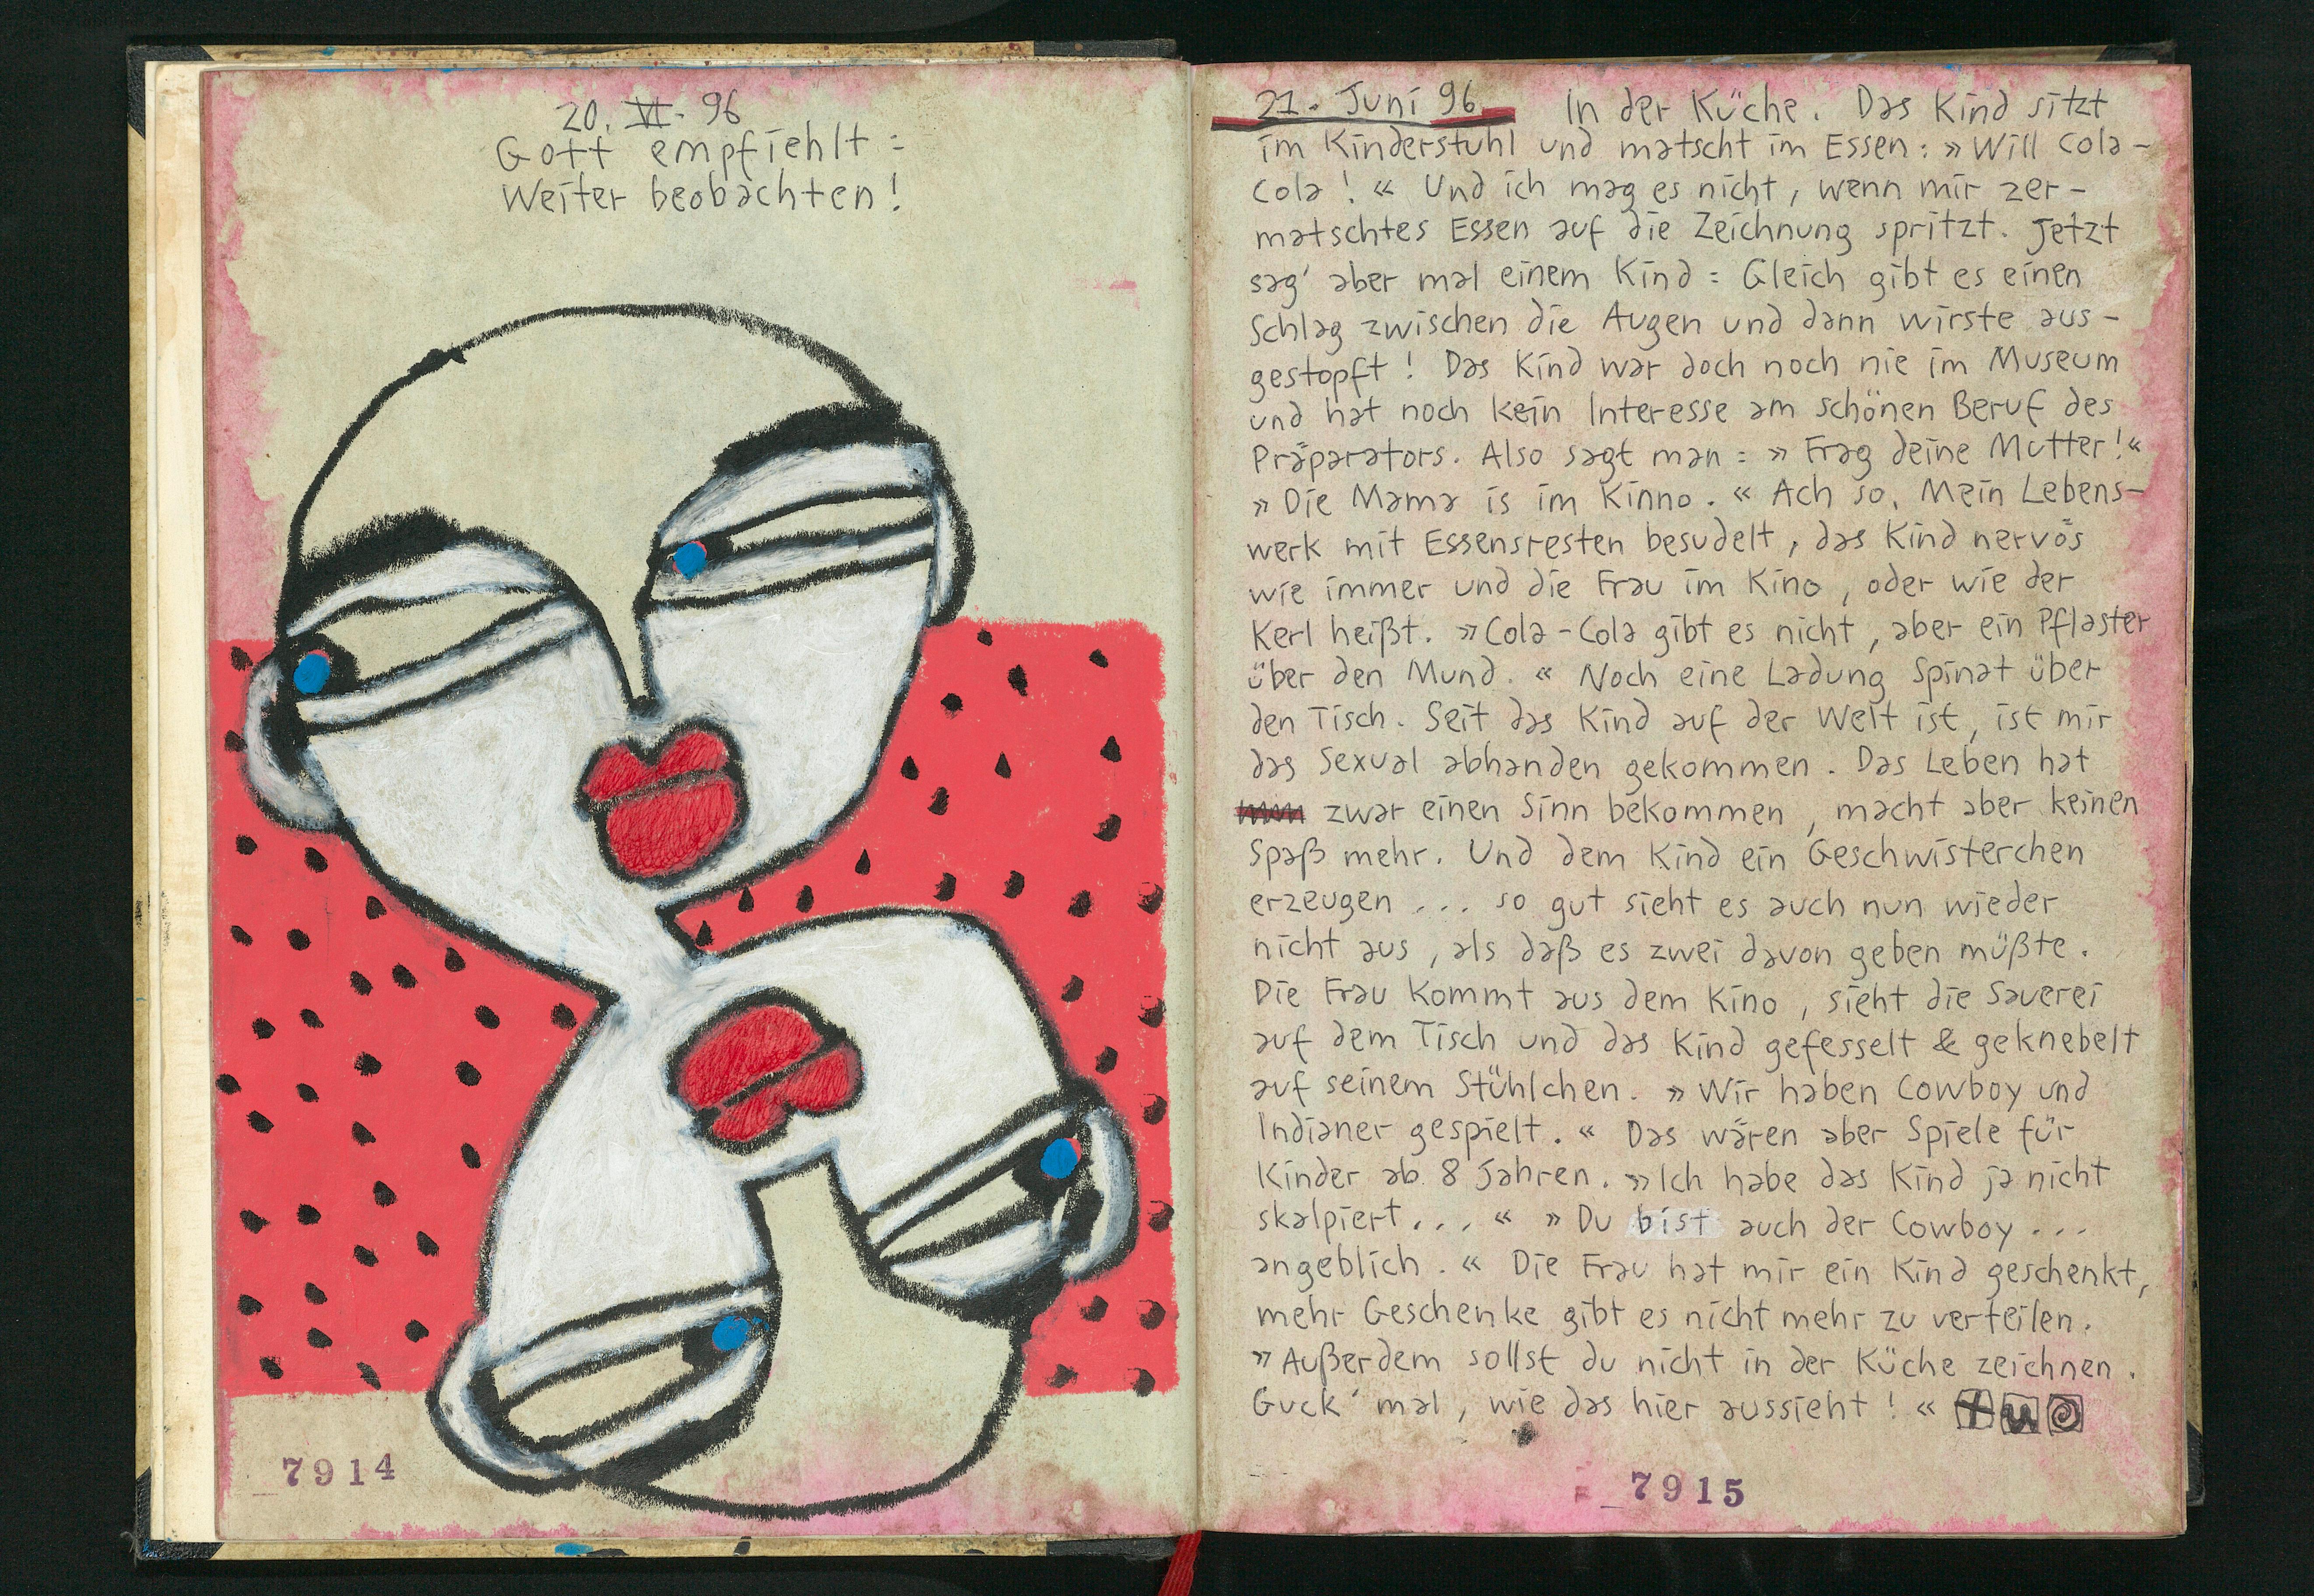 20. VI. 96
Gott empfiehlt =
Weiter beobachten!
7914
21. Juni 96 In der Küche. Das Kind sitzt
im Kinderstuhl und matscht im Essen: »Will Cola-
Cola! « Und ich mag es nicht, wenn mir zer-
matschtes Essen auf die Zeichnung spritzt. Jetzt
sag' aber mal einem Kind = Gleich gibt es einen
Schlag zwischen die Augen und dann wirste aus-
gestopft! Das Kind war doch noch nie im Museum
und hat noch kein Interesse am schönen Beruf des
Präparators. Also sagt man = » Frag deine Mutter!«
» Die Mama is im Kinno. « Ach so. Mein Lebens-
werk mit Essensresten besudelt, das Kind nervös
wie immer und die Frau im Kino, oder wie der
Kerl heißt. »Cola-Cola gibt es nicht, aber ein Pflaster
über den Mund. « Noch eine Ladung Spinat über
den Tisch. Seit das Kind auf der Welt ist, ist mir
das Sexual abhanden gekommen. Das Leben hat
zwar einen Sinn bekommen, macht aber keinen
Spaß mehr. Und dem Kind ein Geschwisterchen
erzeugen ... so gut sieht es auch nun wieder
nicht aus, als daß es zwei davon geben müßte.
Die Frau kommt aus dem Kino, sieht die Sauerei
auf dem Tisch und das Kind gefesselt & geknebelt
auf seinem Stühlchen. » Wir haben Cowboy und
Indianer gespielt. « Das wären aber Spiele für
Kinder ab 8 Jahren. »Ich habe das Kind ja nicht
skalpiert... « » Du bist auch der Cowboy ...
angeblich. « Die Frau hat mir ein Kind geschenkt,
mehr Geschenke gibt es nicht mehr zu verteilen.
» Außerdem sollst du nicht in der Küche zeichnen.
Guck' mal, wie das hier aussieht! «
7915